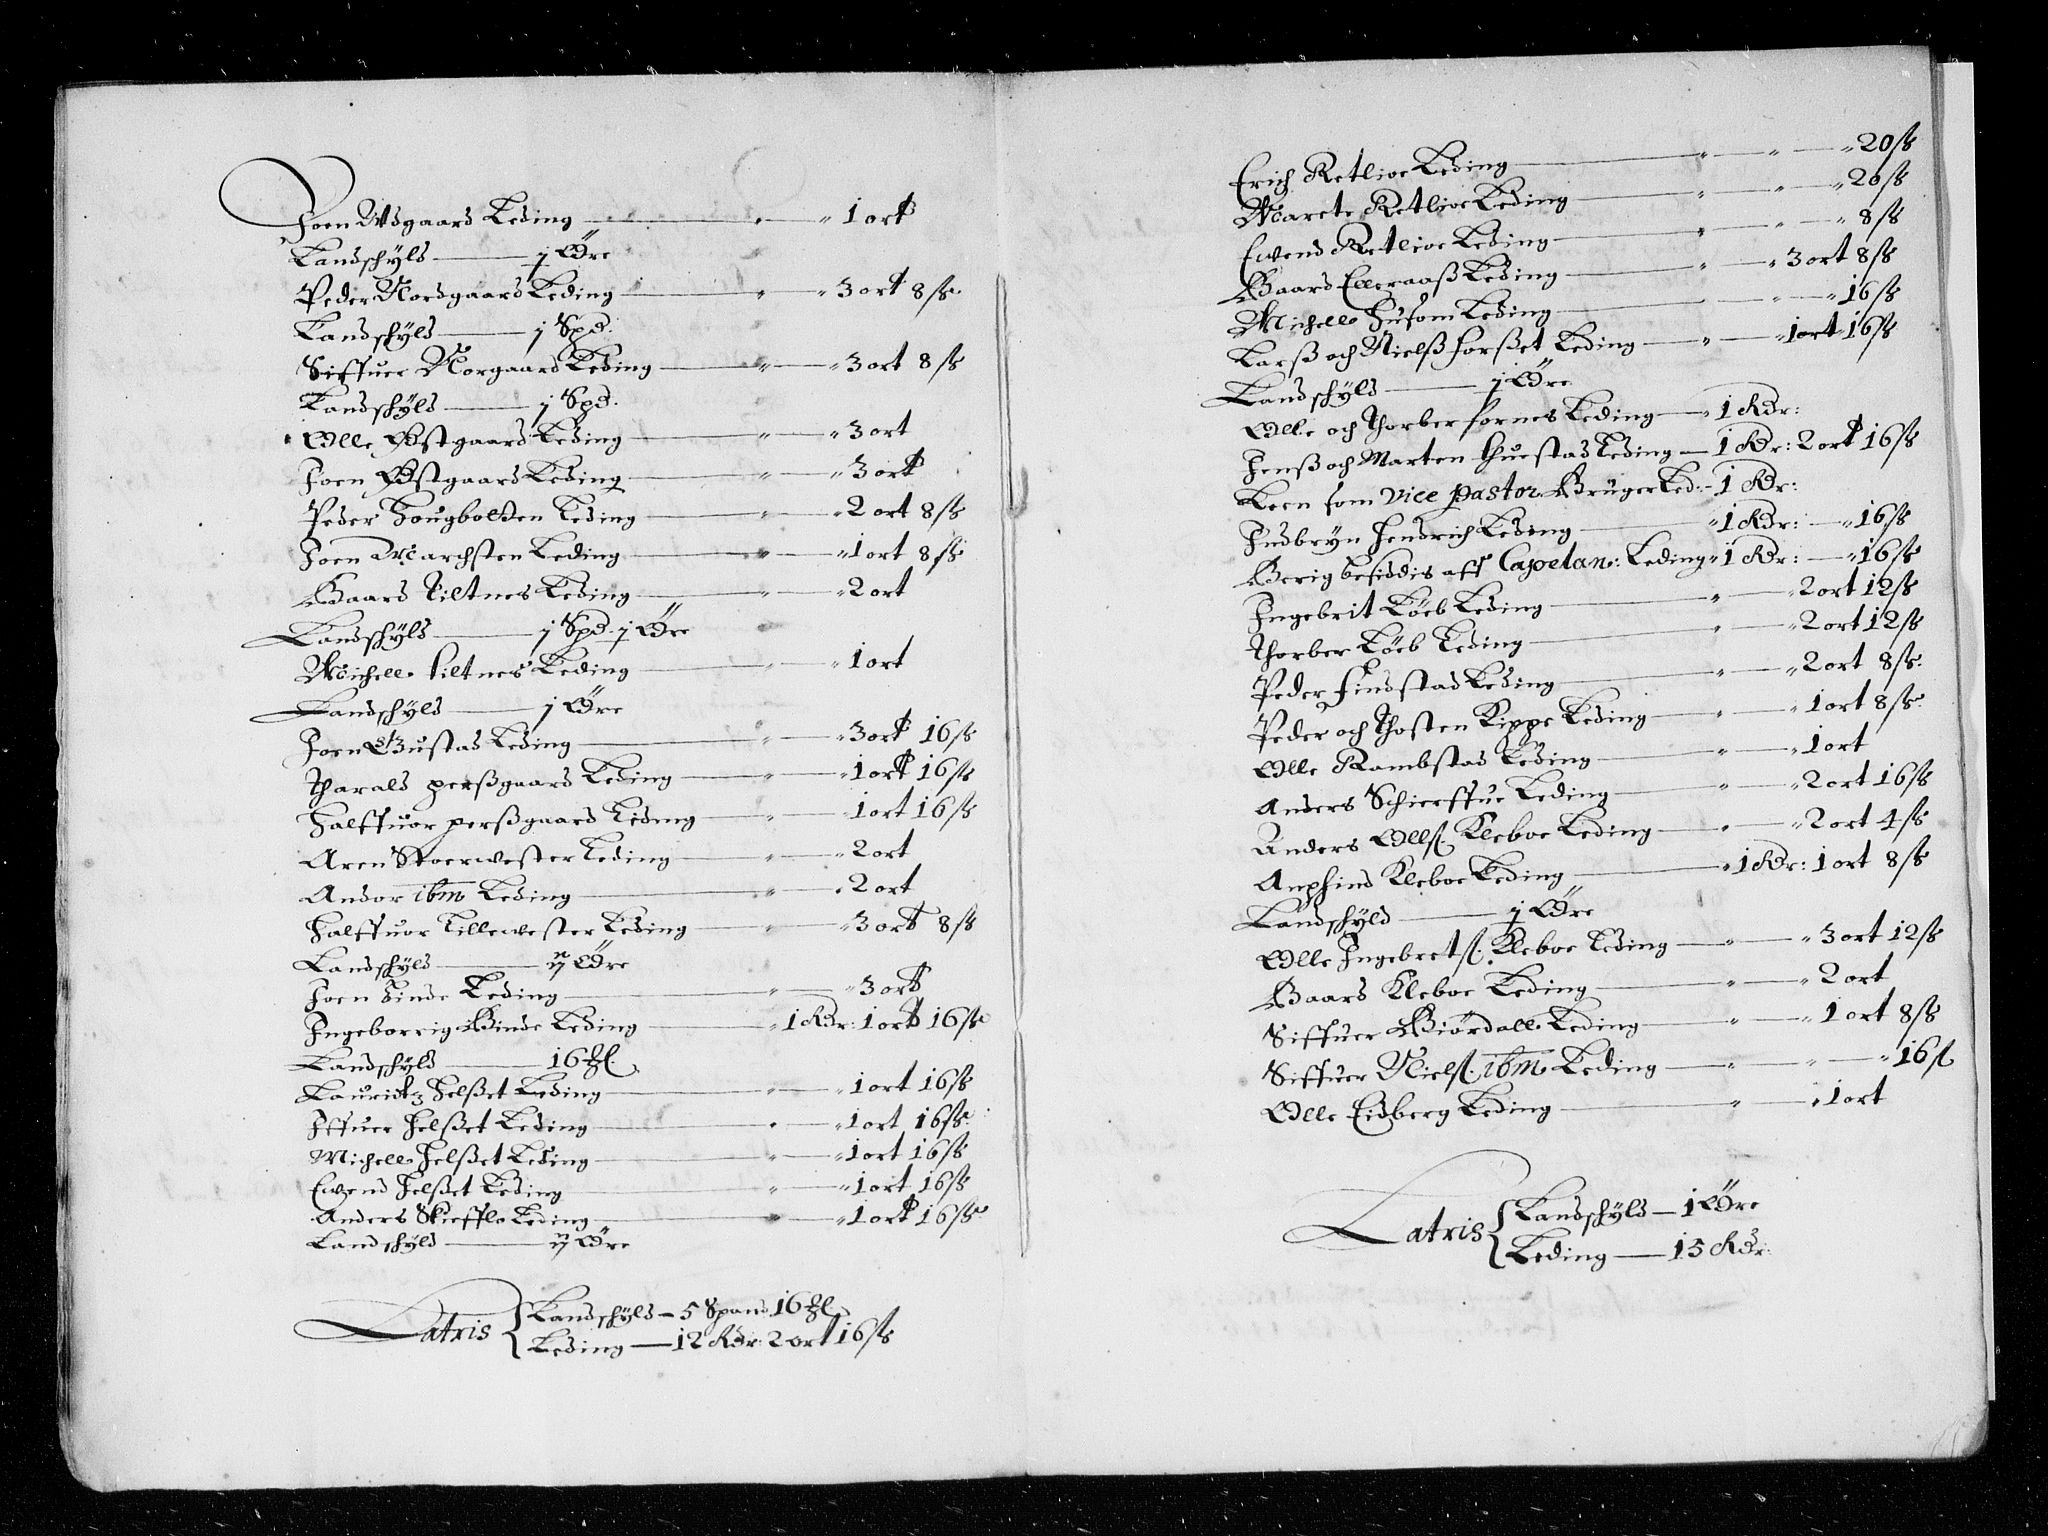 Joen Udgaard Leding — " — " 1 ort
Landschyld — j Øre
Peder Nordgaard Leding — " — " 3 ort 8 ß
Landschyld — j Spd.
Siffuer Norgaard Leding — " — " 3 ort 8 ß
Landschyld — j Spd.
Olle Østgaard Leding — " — " 3 ort
Joen Østgaard Leding — " — " 3 ort
Peder Hougbolten Leding — " — " 2 ort 8 ß
Joen Marchsten Leding — " — " 1 ort 8 ß
Baard Tiltnes Leding — " — " 2 ort
Landschyld — j Spd. j Øre
Michell Tiltnes Leding — " — " 1 ort
Landschyld — j Øre
Joen Gustad Leding — " — " 3 ort 16 ß
Tharald persgaard Leding — " — " 1 ort 16 ß
Halffuor persgaard Leding — " — 1 ort 16 ß
Aren Stoerwester Leding — " — " 2 ort
Andor ibm Leding — " — " 2 ort
Halffuor Lillewester Leding — " — " 3 ort 8 ß
Landschyld — ij Øre
Joen Linde Leding — " — " 3 ort
Ingeborrig Binde Leding — " 1 Rdr: 1 ort 16 ß
Landschyld — 16 ℳl.
Lauridtz Helset Leding — " — " 1 ort 16 ß
Iffuer Helset Leding — " — " 1 ort 16 ß
Michell Helset Leding — " — " 1 ort 16 ß
Ewend Helset Leding — " — " 1 ort 16 ß
Anders Skiefflo Leding — " — " 1 ort 16 ß
Landschyld — ij Øre
Latris { Landschyld — 5 Spand 16 ℳl
Leding — 12 Rdr: 2 ort 16 ß
Erich Retlioe Leding — " — " — " 20 ß
Marete Retlioe Leding — " — " — " 20 ß
Ewend Retlioe Leding — " — " — " 8 ß
Baard Elleraaß Leding — " — " 3 ort 8 ß
Michell Husom Leding — " — " 16 ß
Larß och Nielß Forßet Leding — " — " 1 ort 16 ß
Landschyld — j Øre
Olle och Thorber fornes Leding — " 1 Rdr:
Jenß och Marten Thuestad Leding — 1 Rdr: 2 ort 16 ß
Leen som vice pastor Bruger Led: - 1 Rdr:
Indbryn Hendrich Leding — " 1 Rdr: — " 16 ß
Berig besiddis aff Capelan: Leding " 1 Rdr: — " 16 ß
Ingebrit Löeb Leding — " — " 2 ort 12 ß
Thorber Löeb Leding — " — " 2 ort 12 ß
Peder Findstad Leding — " — " 2 ort 8 ß
Peder och Thosten Kippe Leding — " — " 1 ort 8 ß
Olle Rambstad Leding — " — " 1 ort
Anders Schierffue Leding — " — " 2 ort 16 ß
Anders Ollß. Kleboe Leding — " — " 2 ort 4 ß
Anphind Kleboe Leding — " 1 Rdr: 1 ort 8 ß
Landschyld — j Øre
Olle Ingebretß. Kleboe Leding — " — " 3 ort 12 ß
Baard Kleboe Leding — " — " 2 ort
Siffuer Biördall Leding — " — " 1 ort 8 ß
Siffuer Nielß. ibm Leding — " — " — " 16 ß
Olle Eidberg Leding — " — " 1 ort
Latris { Landschyld — 1 Øre
Leding — 15 Rdr: